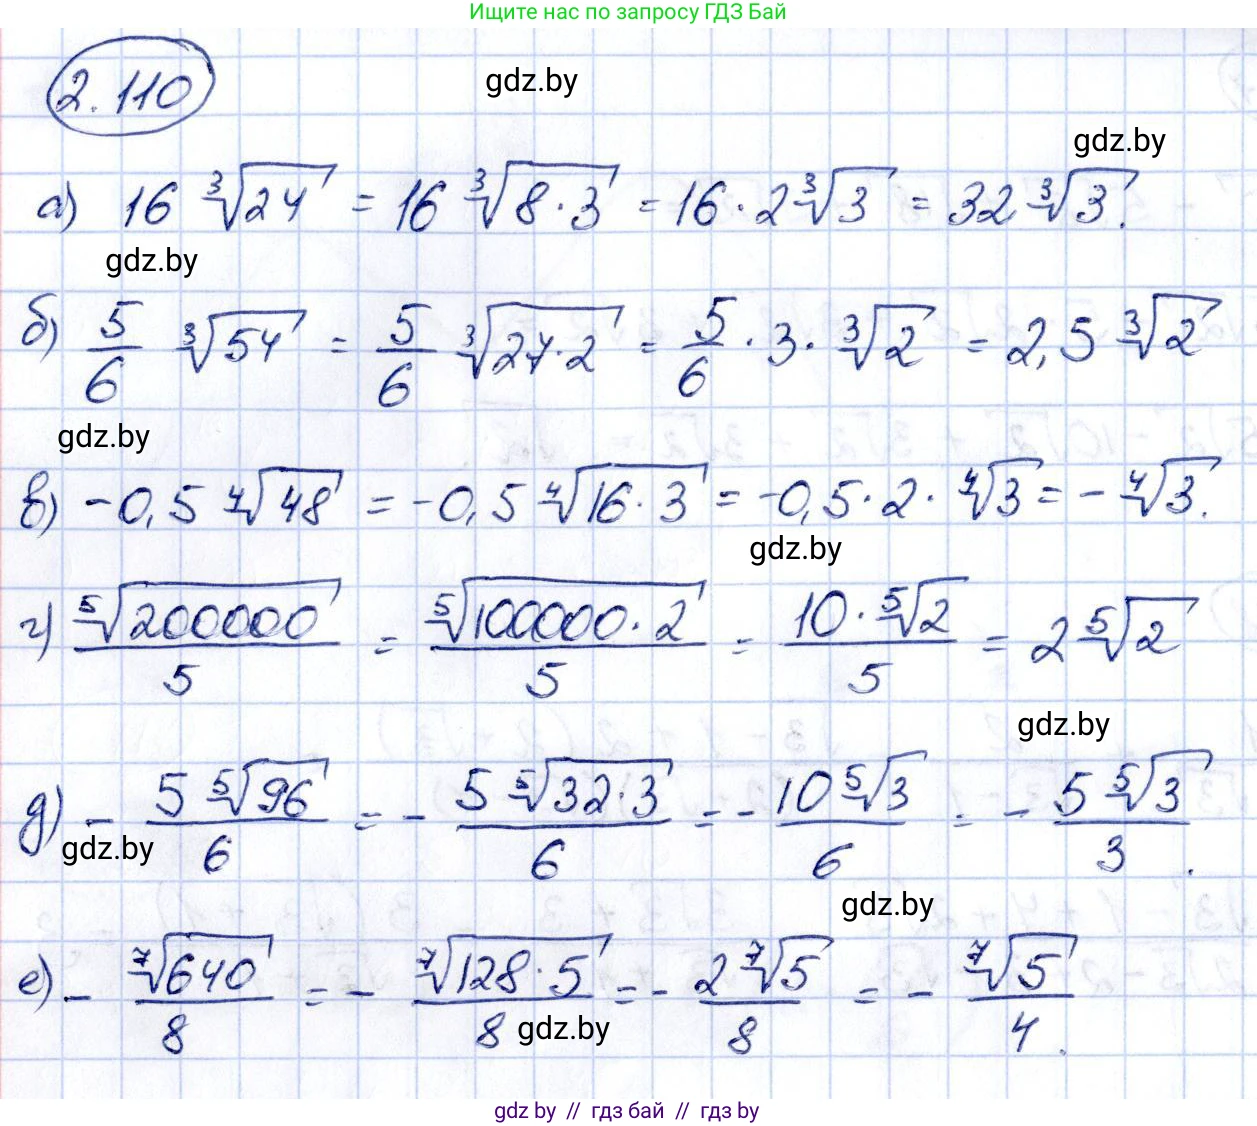 Ищите нас по запросу ГДЗ Бай
2.110
gdz.by
gdz.by
а) 16 ∛24 = 16 ∛(8·3) = 16·2∛3 = 32∛3.
gdz.by
б) 5/6 ∛54 = 5/6 ∛(27·2) = 5/6 · 3 · ∛2 = 2,5 ∛2
gdz.by
в) -0,5 ∜48 = -0,5 ∜(16·3) = -0,5·2·∜3 = -∜3.
gdz.by
г) ⁵√200000/5 = ⁵√(100000·2)/5 = 10·⁵√2/5 = 2⁵√2
gdz.by
д) - 5⁵√96/6 = - 5⁵√(32·3)/6 = - 10⁵√3/6 = - 5⁵√3/3.
gdz.by
gdz.by
е) - ⁷√640/8 = - ⁷√(128·5)/8 = - 2⁷√5/8 = - ⁷√5/4.
gdz.by
gdz by // гдз бай // гдз by